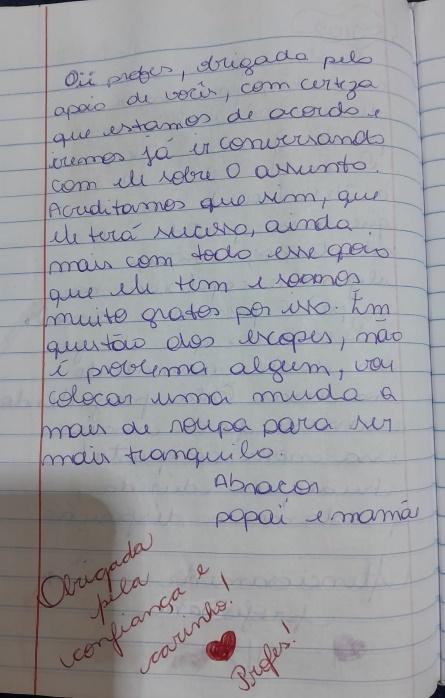 Oii profes, obrigada pelo
apoio de vocês, com certeza
que estamos de acordo e
iremos já ir conversando
com ele sobre o assunto.
Acreditamos que sim, que
ele terá sucesso, ainda
mais com todo esse apoio
que ele tem e somos
muito gratos por isso. Em
questão dos escapes, não
é problema algum, vou
colocar uma muda a
mais de roupa para ser
mais tranquilo.
Abraços
papai e mamã
Obrigada
pela
confiança e
carinho!
Profes!